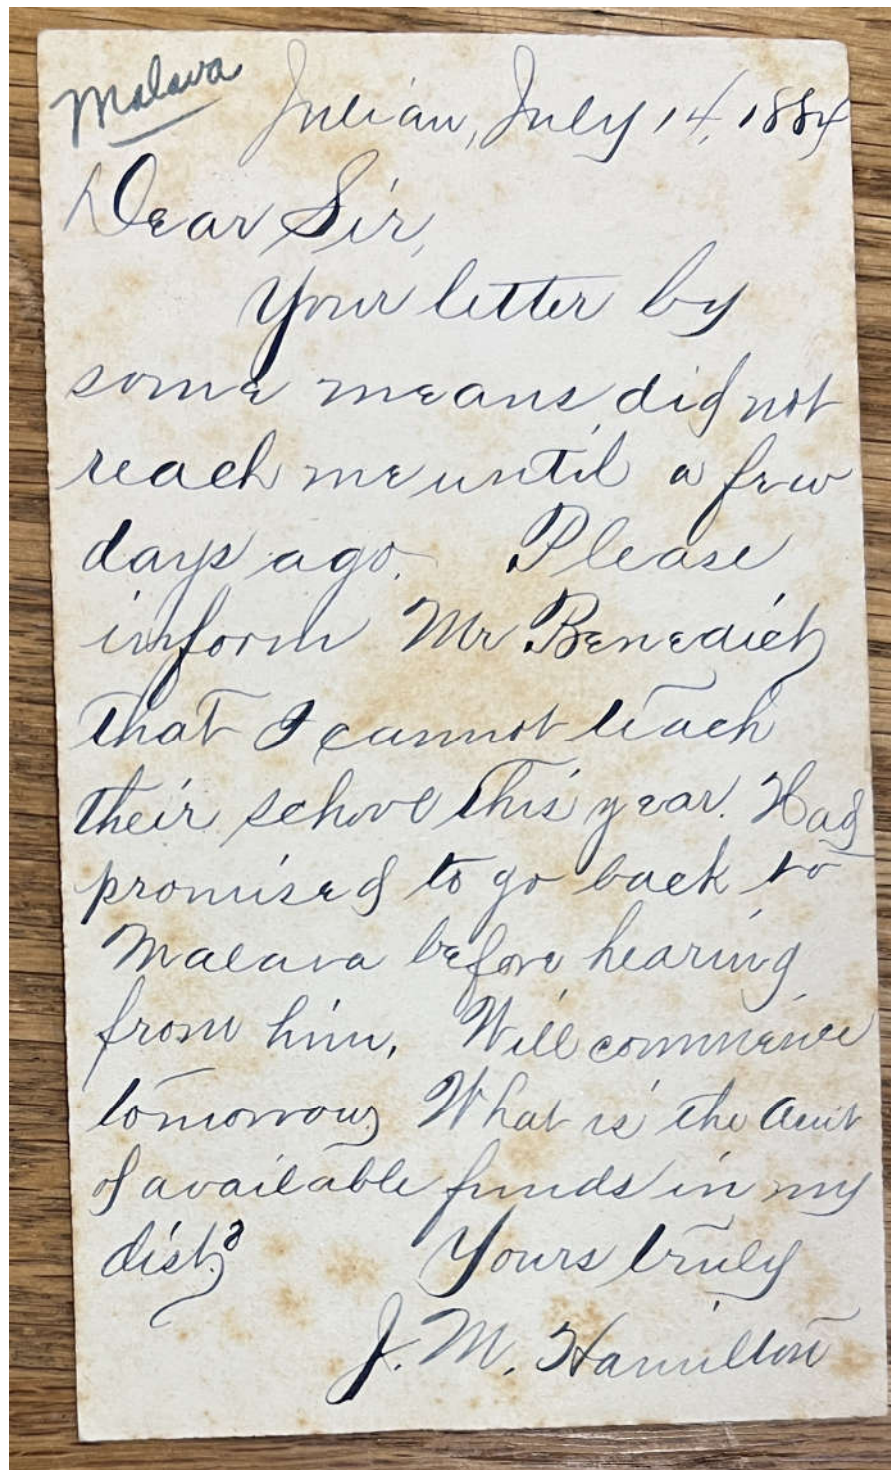 Malava
Julian, July 14, 1884
Dear Sir,
Your letter by
some means did not
reach me until a few
days ago. Please
inform Mr Benedict
that I cannot teach
their school this year. Had
promised to go back to
Malava before hearing
from him. Will commence
tomorrow, What is the amt
of available funds in my
dist.?
Yours truly
J. M. Hamilton